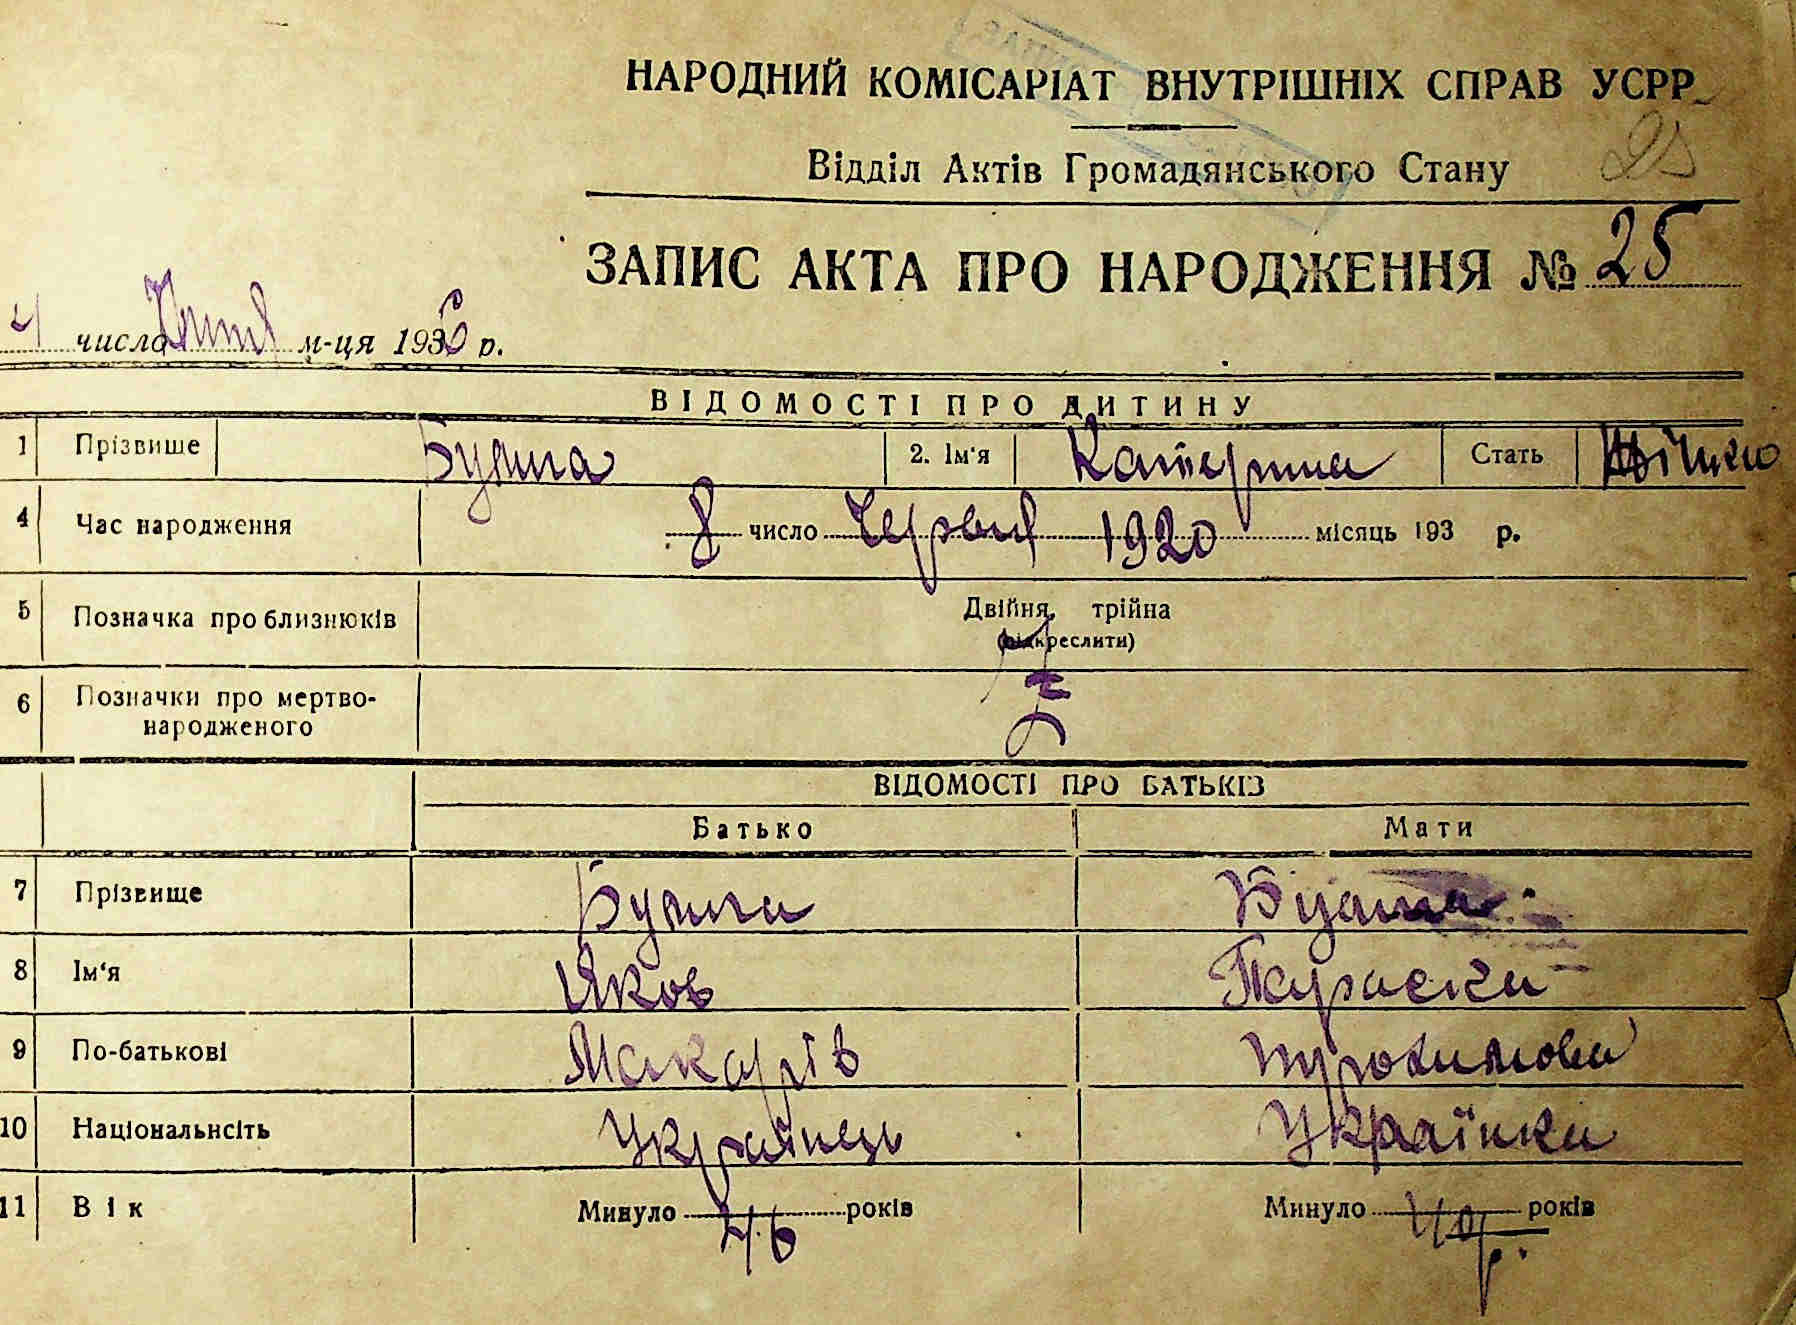 НАРОДНИЙ КОМІСАРІАТ ВНУТРІШНІХ СПРАВ УСРР
25
Відділ Актів Громадянського Стану
ЗАПИС АКТА ПРО НАРОДЖЕННЯ № 25
4 число м-ця 1936 р.
ВІДОМОСТІ ПРО ДИТИНУ
1 Прізвище 2. Ім'я Катерина Стать
4 Час народження 8 число Червня 1920 місяць 193 р.
5 Позначка про близнюків Двійня, трійна
(підкреслити)
6 Позначки про мертво-
народженого
ВІДОМОСТІ ПРО БАТЬКІВ
Батько Мати
7 Прізвище
8 Ім'я Яков Параска
9 По-батькові Макарів
10 Національнсіть Українець Українка
11 Вік Минуло 46 років Минуло 40 р. років